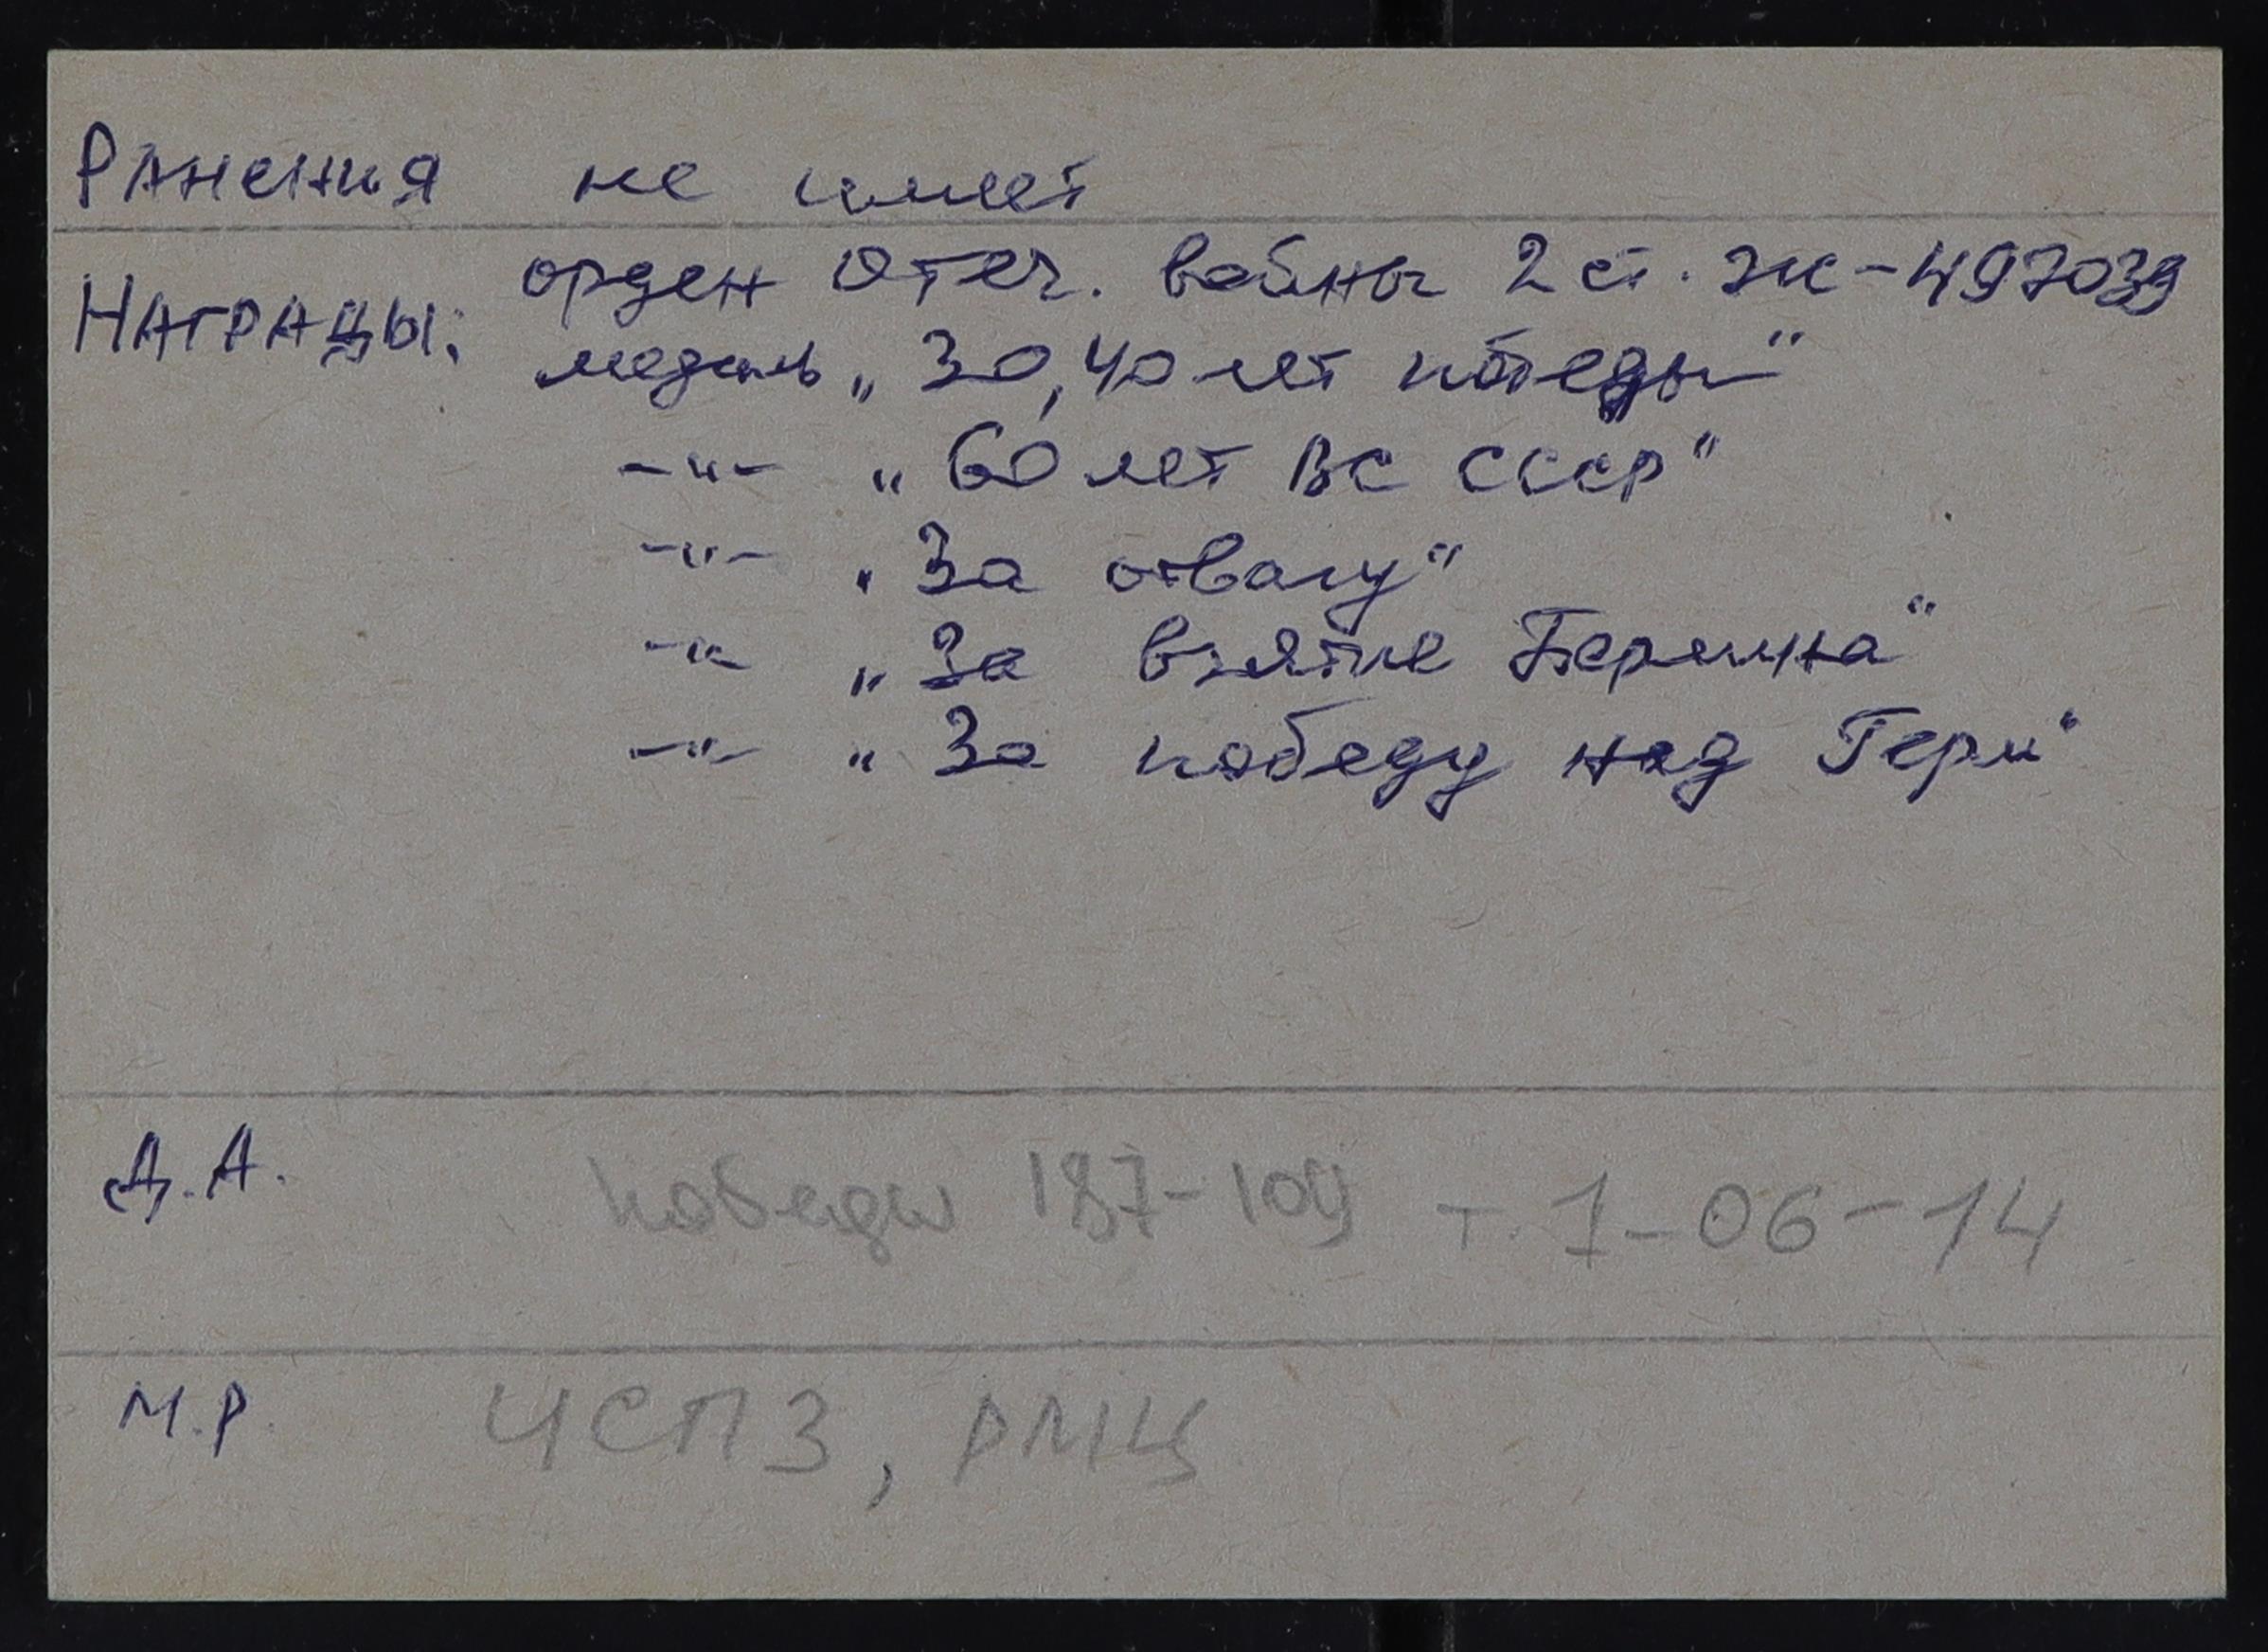 Ранения не имеет
Награды: орден Отеч. войны 2 ст. Ж-497039
медаль „30, 40 лет победы"
-"- „60 лет ВС СССР"
-"- „За отвагу"
-"- „За взятие Берлина"
-"- „За победу над Герм"
Д.А. Победы 187-109 т. 1-06-14
М.Р. ЧСПЗ, РМЦ